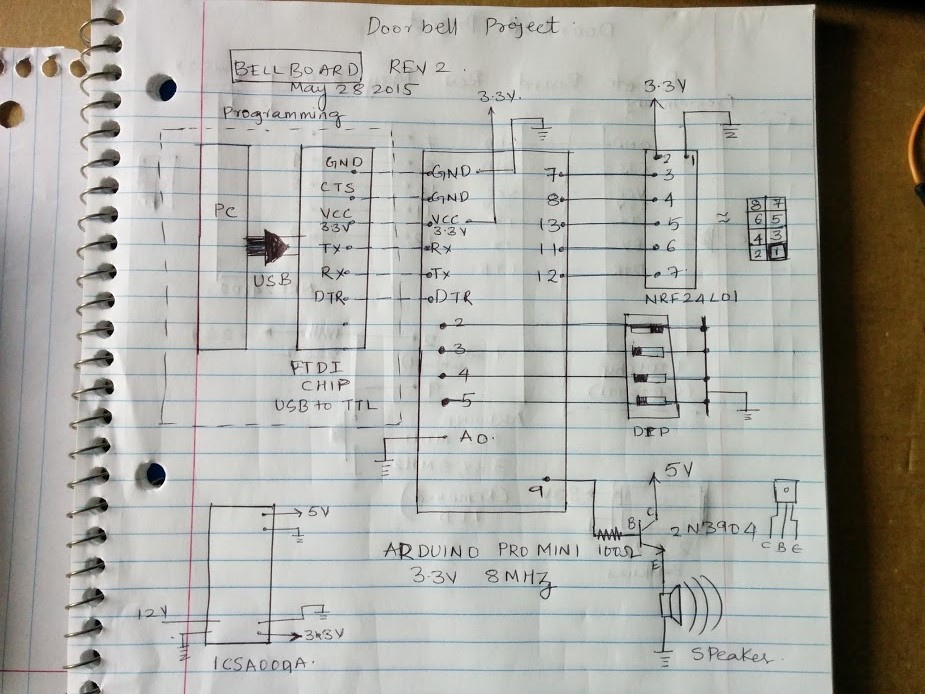 Doorbell Project
BELLBOARD REV 2.
May 28 2015
Programming
3.3V.
3.3V
PC
USB
GND
CTS
VCC
3.3V
TX
RX
DTR
FTDI
CHIP
USB to TTL
GND
GND
VCC
3.3V
Rx
Tx
DTR
2
3
4
5
A0.
7
8
13
11
12
9
ARDUINO PRO MINI
3.3V 8MHz
2 1
3
4
5
6
7
NRF24L01
≈
8 7
6 5
4 3
2 1
DIP
5V
100Ω
B
C
E
2N3904
C B E
Speaker.
5V
12V
3.3V
ICSA009A.